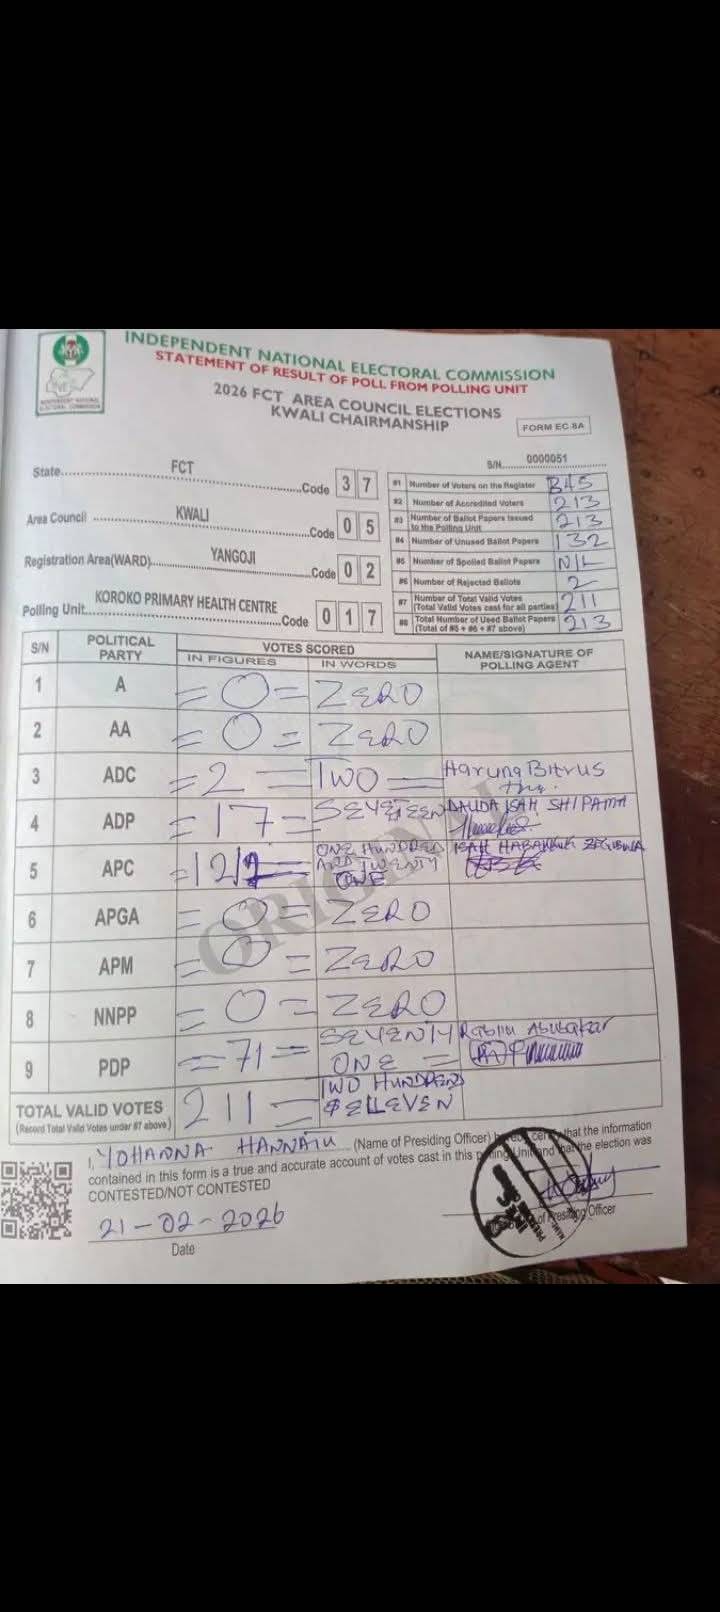 INDEPENDENT NATIONAL ELECTORAL COMMISSION
STATEMENT OF RESULT OF POLL FROM POLLING UNIT
2026 FCT AREA COUNCIL ELECTIONS
KWALI CHAIRMANSHIP
FORM EC 8A
S/N 0000051
State FCT Code 3 7
Area Council KWALI Code 0 5
Registration Area(WARD) YANGOJI Code 0 2
Polling Unit KOROKO PRIMARY HEALTH CENTRE Code 0 1 7
#1 Number of Voters on the Register 345
#2 Number of Accredited Voters 213
#3 Number of Ballot Papers Issued to the Polling Unit 213
#4 Number of Unused Ballot Papers 132
#5 Number of Spoiled Ballot Papers NIL
#6 Number of Rejected Ballots 2
#7 Number of Total Valid Votes (Total Valid Votes cast for all parties) 211
#8 Total Number of Used Ballot Papers (Total of #5 + #6 + #7 above) 213
S/N POLITICAL PARTY VOTES SCORED NAME/SIGNATURE OF POLLING AGENT
IN FIGURES IN WORDS
1 A =0= ZERO
2 AA =0= ZERO
3 ADC =2= TWO Haruna Bitrus
4 ADP =17= SEVETEEN DAUDA ISAH SHIPAMA
5 APC ONE HUNDRED AND TWENTY ONE ISAH HABAKKUK
6 APGA =0= ZERO
7 APM =0= ZERO
8 NNPP =0= ZERO
9 PDP =71= SEVENTY ONE = Rabiu Abubakar
TOTAL VALID VOTES 211= TWO HUNDRED & ELLEVEN
(Record Total Valid Votes under #7 above)
ORIGINAL
I, YOHANNA HANNATU (Name of Presiding Officer) hereby certify that the information
contained in this form is a true and accurate account of votes cast in this polling Unit and that the election was
CONTESTED/NOT CONTESTED
21-02-2026
Date
of Presiding Officer